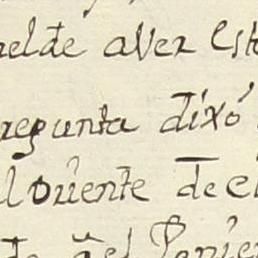 nelde aver Est
regunta dixó
l oriente de el
de q̃ el Ponien